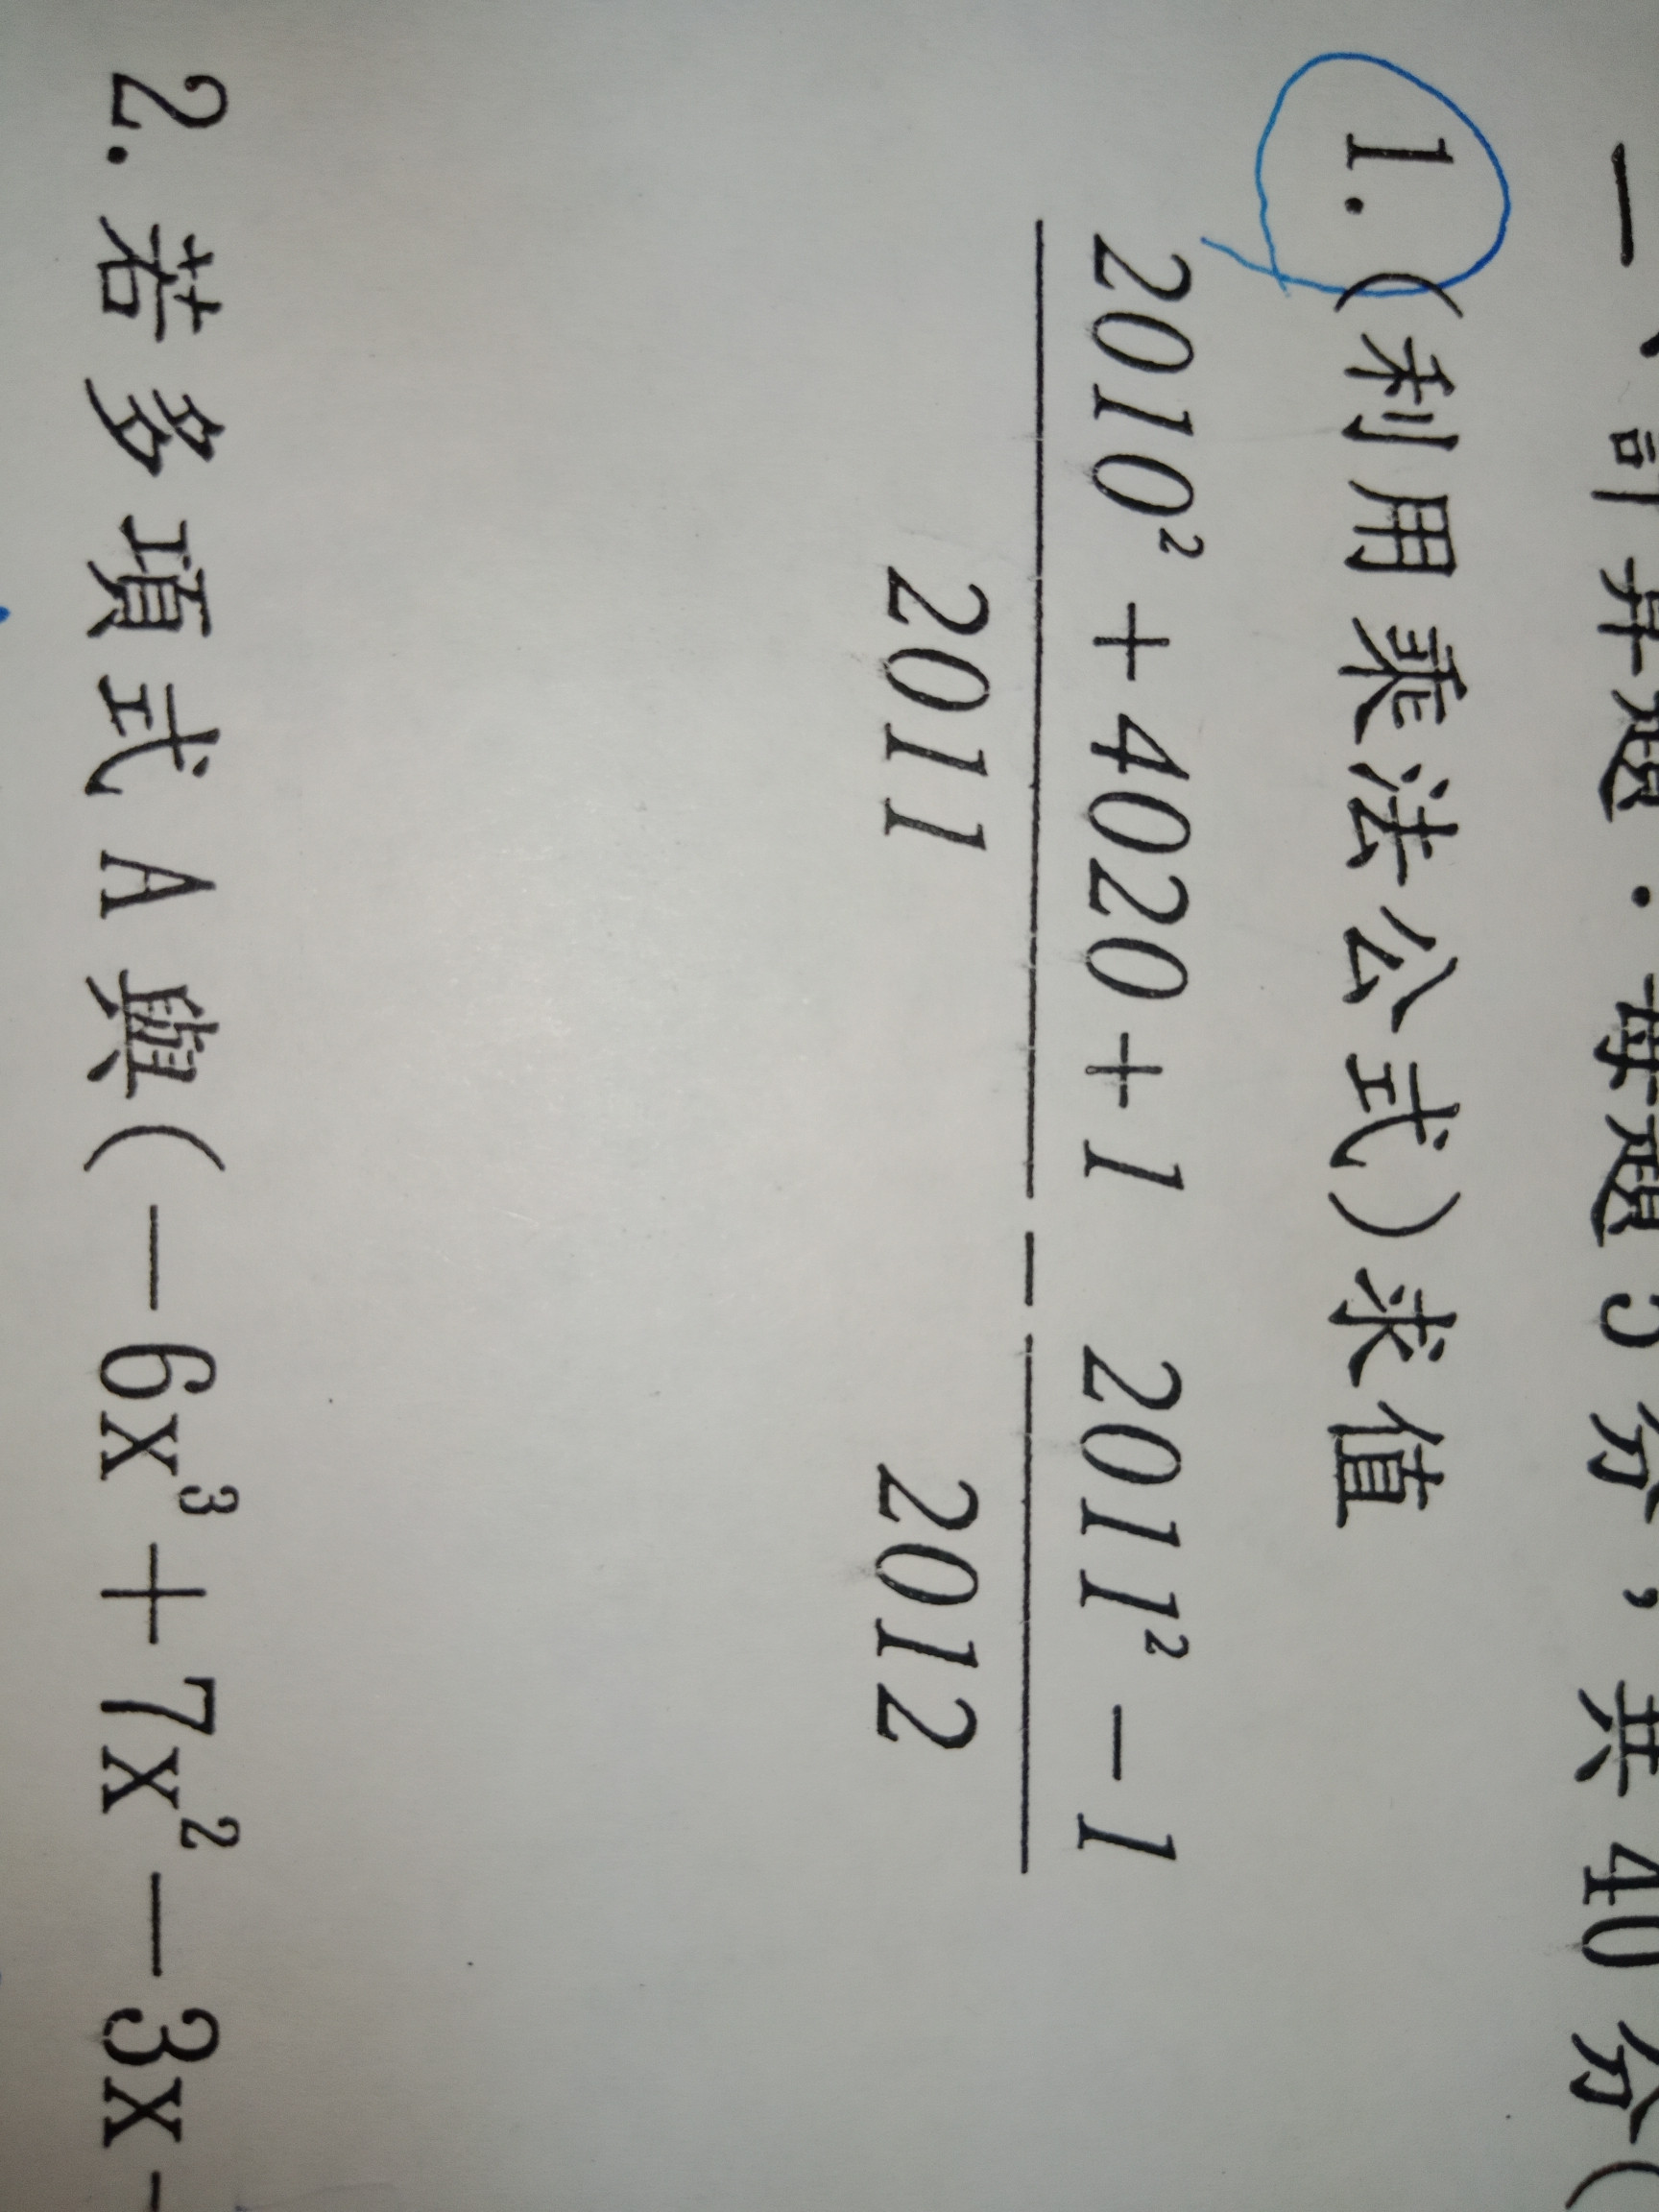 一、計算題:每題5分,共40分(
1.(利用乘法公式)求值
2010² + 4020 + 1 / 2011 − 2011² − 1 / 2012
2.若多項式A與(−6x³+7x²−3x-